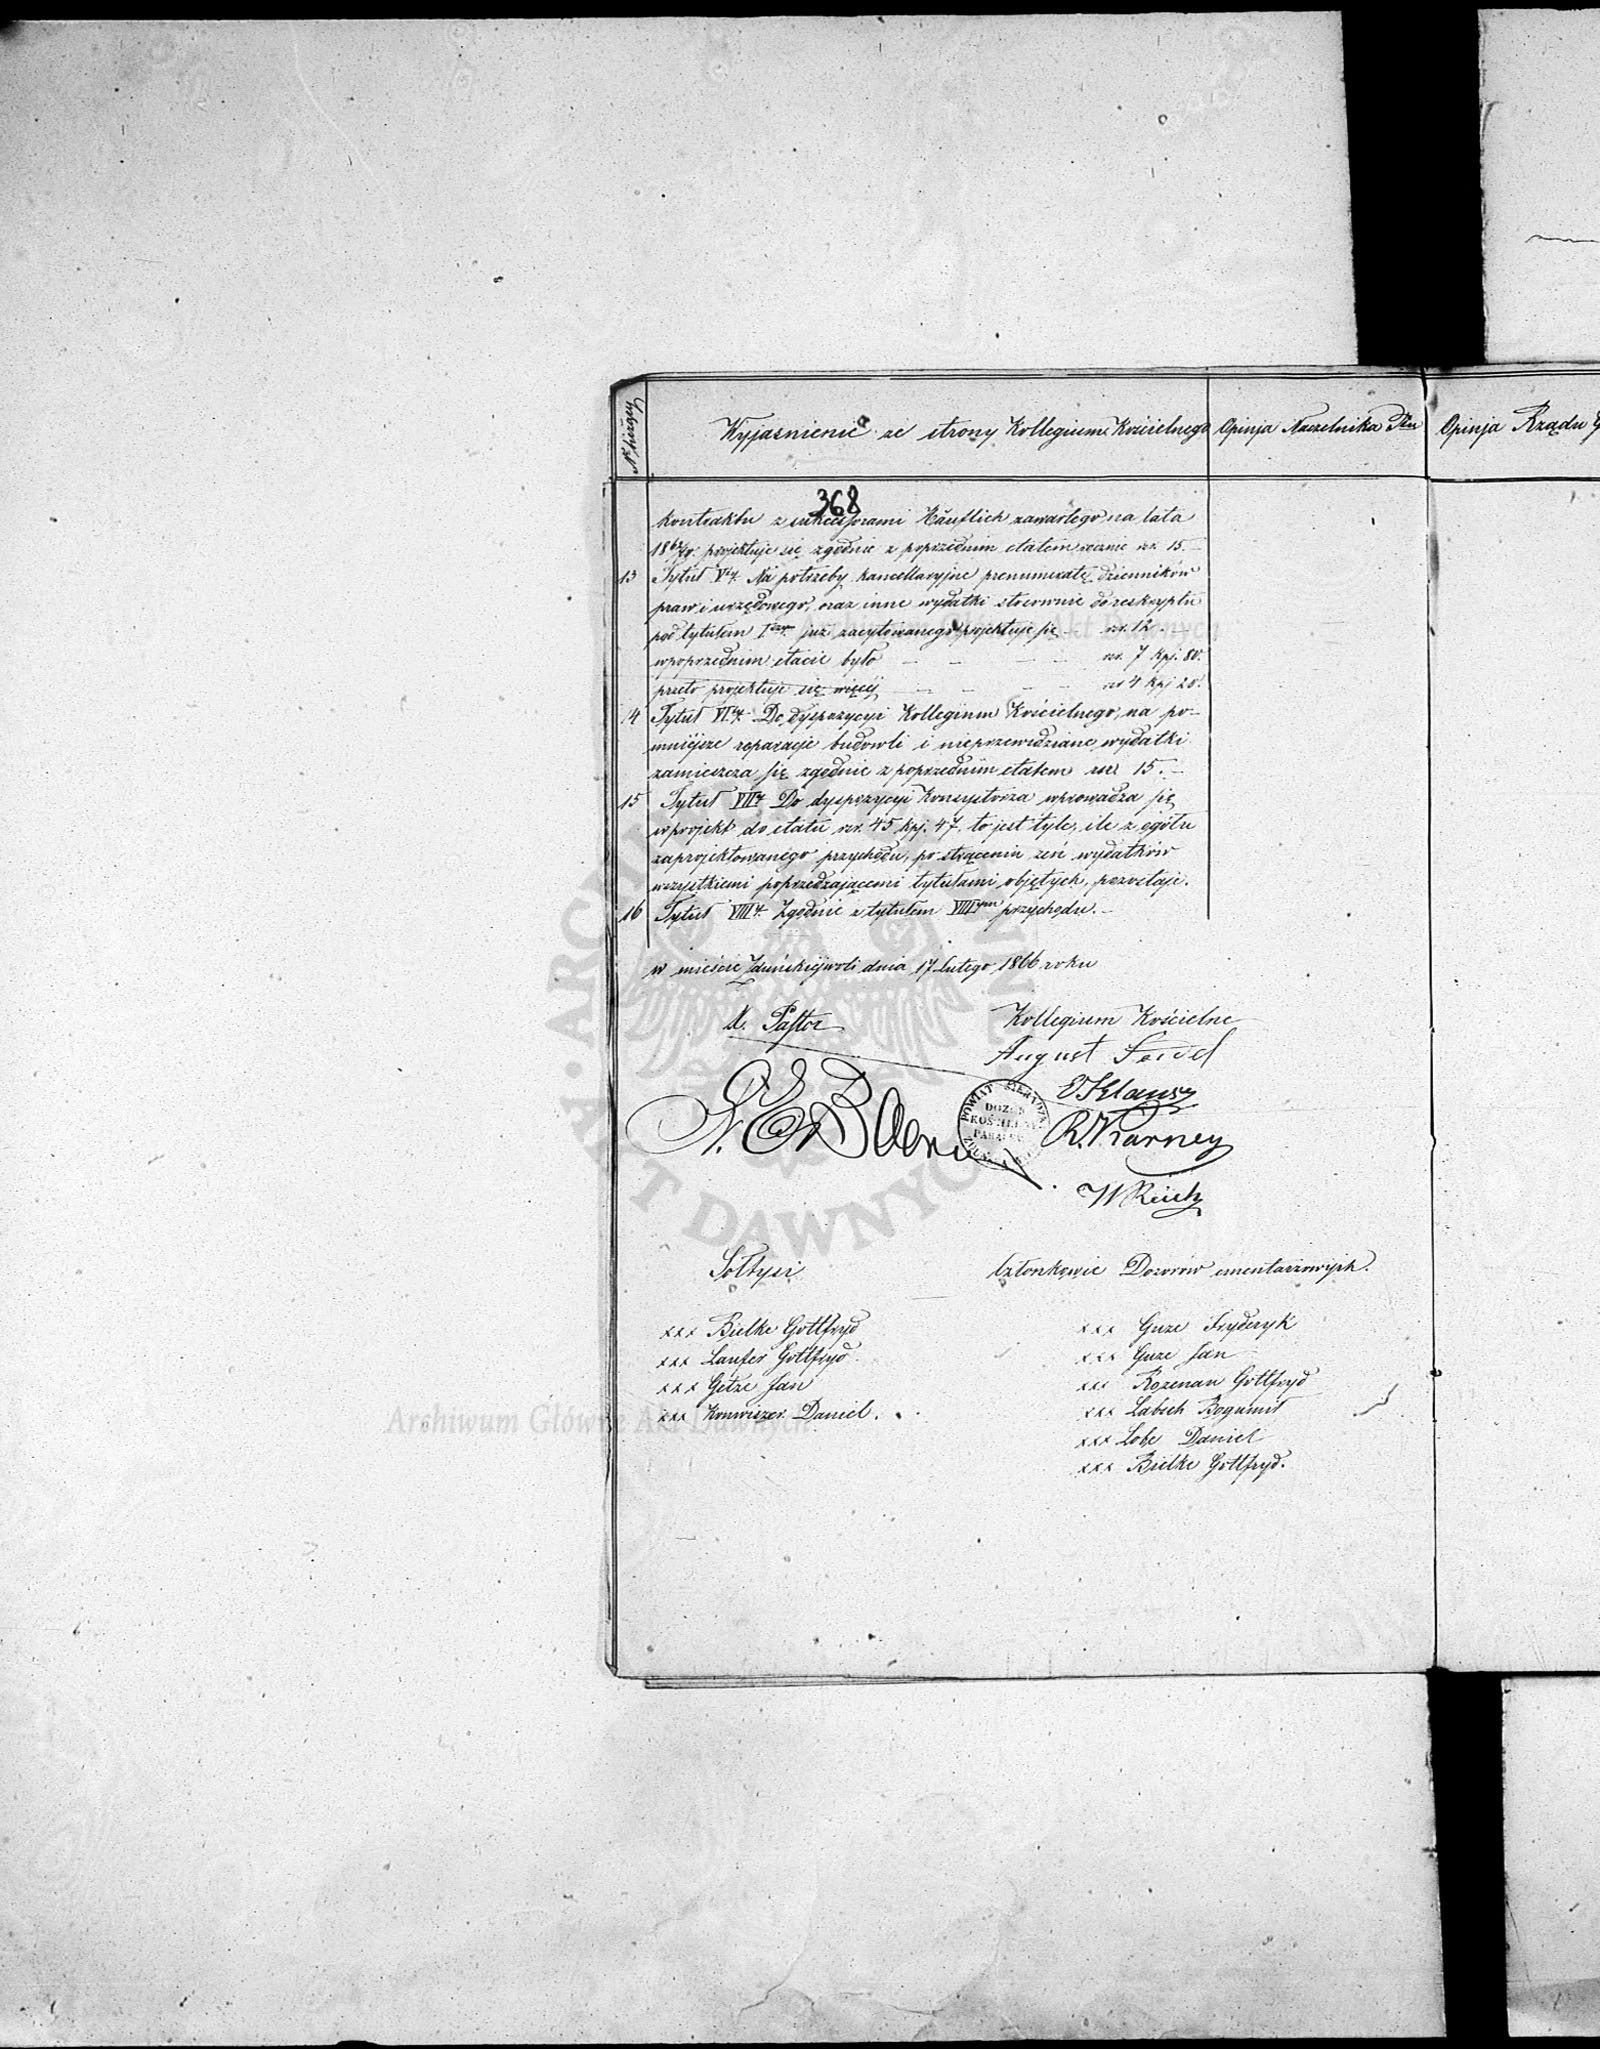 Nr bieżący
Wyjasnienie ze strony Kollegium Kościelnego
Opinja Naczelnika Ptu
Opinja Rządu
368
kontraktu z sukcessorami Käuflich zawartego na lata
projektuje się zgodnie z poprzednim etatem rocznie rsr. 15.
13 Tytuł V. Na potrzeby kancellaryjne prenumeratę dzienników
praw i urzędowego, oraz inne wydatki stosownie do reskryptu
pod tytułem I już zacytowanego projektuje się - rsr. 12. -
w poprzednim etacie było - - - - rsr. 7 kpj. 80.
przeto projektuje się więcéj - - - - rsr 4 kpj 20.
14 Tytuł VI. Do dyspozycyi Kollegium Kościelnego, na po-
mniejsze reparacje budowli i nieprzewidziane wydatki
zamieszcza się zgodnie z poprzednim etatem rsr. 15. -
15 Tytuł VII. Do dyspozycyi Konsystorza wprowadza się
w projekt do etatu rsr. 45 kpj. 47. to jest tyle, ile z ogółu
zaprojektowanego przychodu, po strąceniu zeń wydatków
wszystkiemi poprzedzającemi tytułami objętych, pozostaje.
16 Tytuł VIII. Zgodnie z tytułem VIIIym przychodu. -
w mieście Zduńskiéjwoli dnia 17 Lutego 1866 roku
X. Pastor
Kollegium Kościelne
August Seidel
POWIAT SIERADZKI
DOZÓR
KOŚCIELNY
R. Karney
W Reich
Sołtysi
Członkowie Dozorów cmentarzowych.
xxx Bielke Gottfryd
xxx Laufer Gottfryd
xxx Getze Jan
xxx Konwiszer Daniel.
xxx Guze Fryderyk
xxx Guze Jan
xxx Rozenau Gottfryd
xxx Labsch Bogumił
xxx Lobe Daniel
xxx Bielke Gottfryd.
Archiwum Główne Akt Dawnych